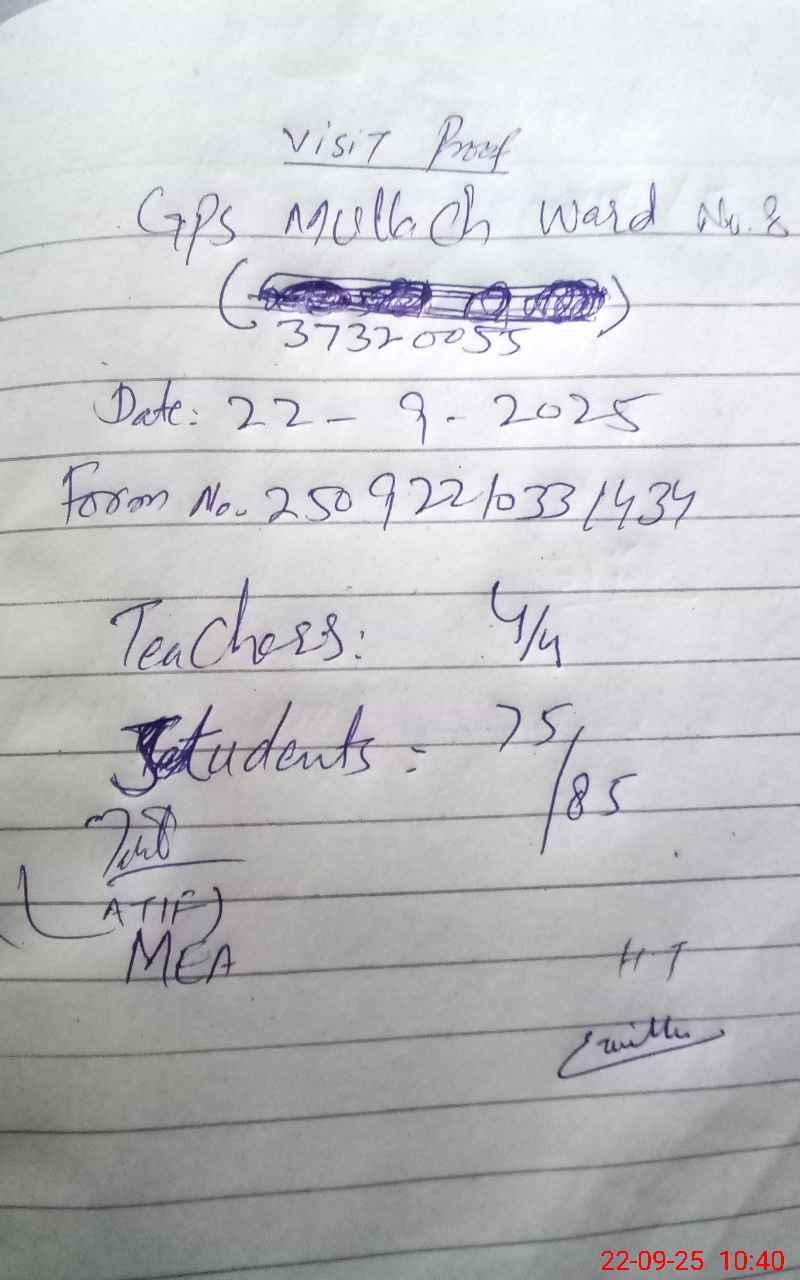 Visit Proof
GPS Mullach Ward No. 8
(37320055)
Date: 22-9-2025
Form No. 25092210331434
Teachers: 4/4
Students: 75/85
(ATIF)
MEA
H.T
22-09-25 10:40